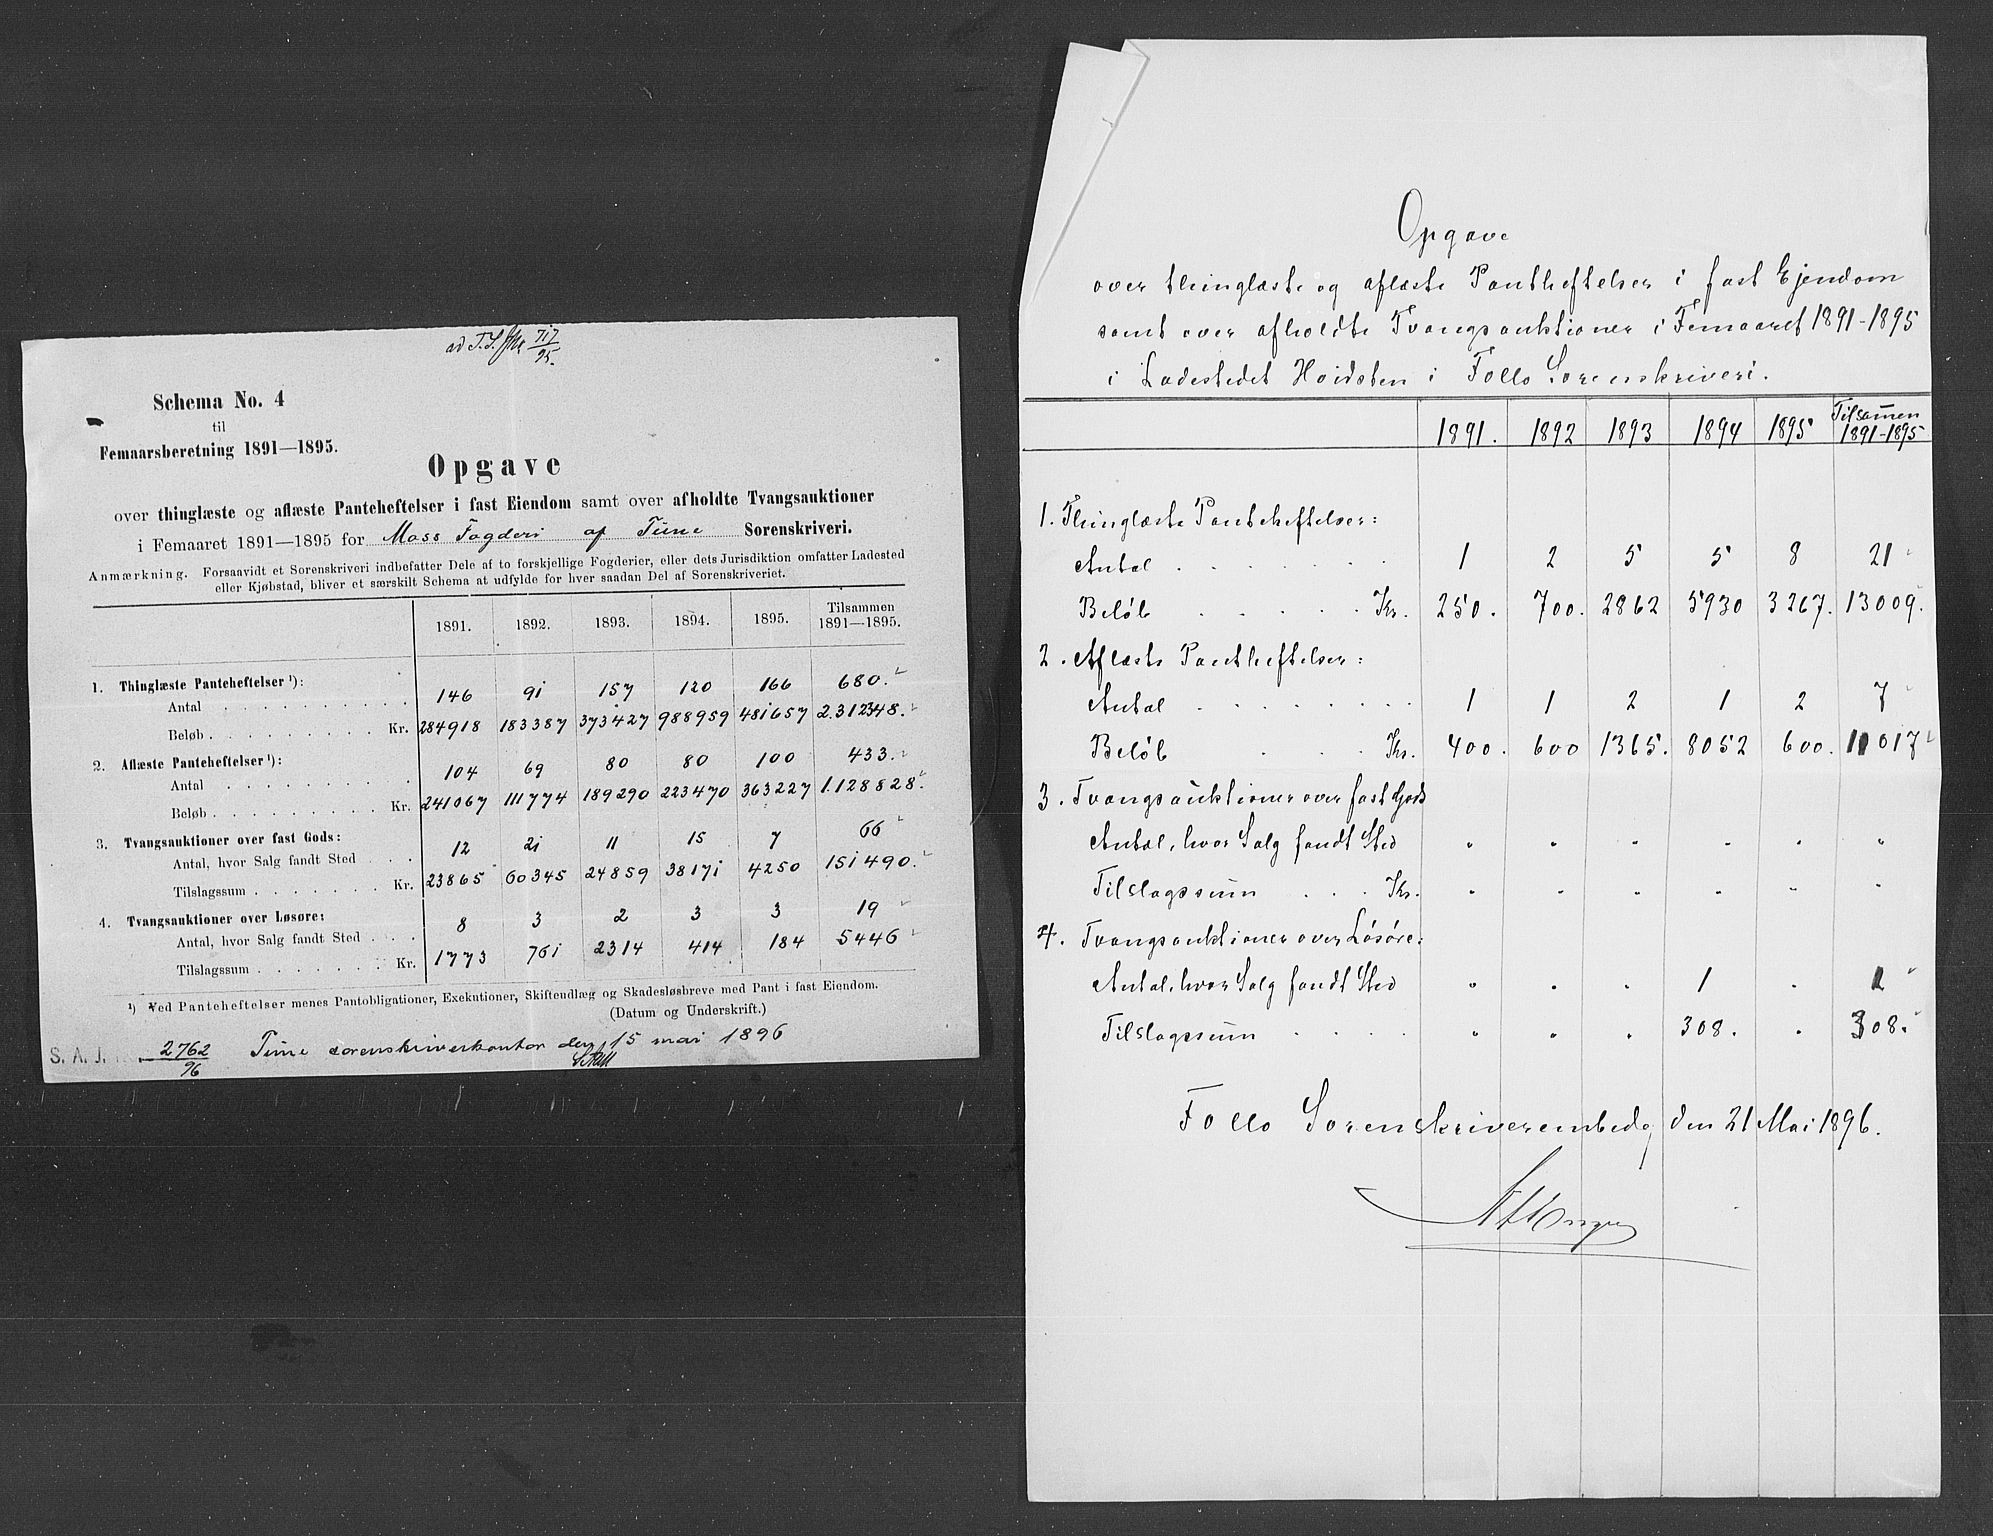 ad T. S. Jnr 717/95.
Schema No. 4
til
Femaarsberetning 1891—1895.
Opgave
over thinglæste og aflæste Panteheftelser i fast Eiendom samt over afholdte Tvangsauktioner
i Femaaret 1891—1895 for Moss Fogderi af Tune Sorenskriveri.
Anmærkning. Forsaavidt et Sorenskriveri indbefatter Dele af to forskjellige Fogderier, eller dets Jurisdiktion omfatter Ladested
eller Kjøbstad, bliver et særskilt Schema at udfylde for hver saadan Del af Sorenskriveriet.
1891. 1892. 1893. 1894. 1895. Tilsammen 1891—1895.
1. Thinglæste Panteheftelser ¹):
Antal 146 91 157 120 166 680.
Beløb Kr. 284918 183387 373427 988959 481657 2.312348.
2. Aflæste Panteheftelser ¹):
Antal 104 69 80 80 100 433.
Beløb Kr. 241067 111774 189290 223470 363227 1.128828.
3. Tvangsauktioner over fast Gods:
Antal, hvor Salg fandt Sted 12 21 11 15 7 66
Tilslagssum Kr. 23865 60345 24859 38171 4250 151490.
4. Tvangsauktioner over Løsøre:
Antal, hvor Salg fandt Sted 8 3 2 3 3 19
Tilslagssum Kr. 1773 761 2314 414 184 5446
¹) Ved Panteheftelser menes Pantobligationer, Exekutioner, Skifteudlæg og Skadesløsbreve med Pant i fast Eiendom.
(Datum og Underskrift.)
Tune sorenskriverkontor den 15 mai 1896
S. A. J. 2762/96
Opgave
over thinglæste og aflæste Pantheftelser i fast Ejendom
samt over afholdte Tvangsauktioner i Femaaret 1891-1895
i Ladestedet Hvidsten i Follo Sorenskriveri.
1891. 1892 1893 1894 1895 Tilsam̄en 1891-1895
1. Thinglæste Panteheftelser:
Antal 1 2 5 5 8 21
Beløb Kr. 250. 700. 2862 5930 3267. 13009.
2. Aflæste Pantheftelser:
Antal 1 1 2 1 2 7
Beløb Kr. 400. 600 1365. 8052 600. 11017
3. Tvangsauktioner over fast Gods
Antal, hvor Salg fandt Sted " " " " " "
Tilslagssum Kr. " " " " " "
4. Tvangsauktioner over Løsøre:
Antal, hvor Salg fandt Sted " " " 1 " 1
Tilslagssum " " " 308. " 308.
Follo Sorenskriverembede, den 21 Mai 1896.